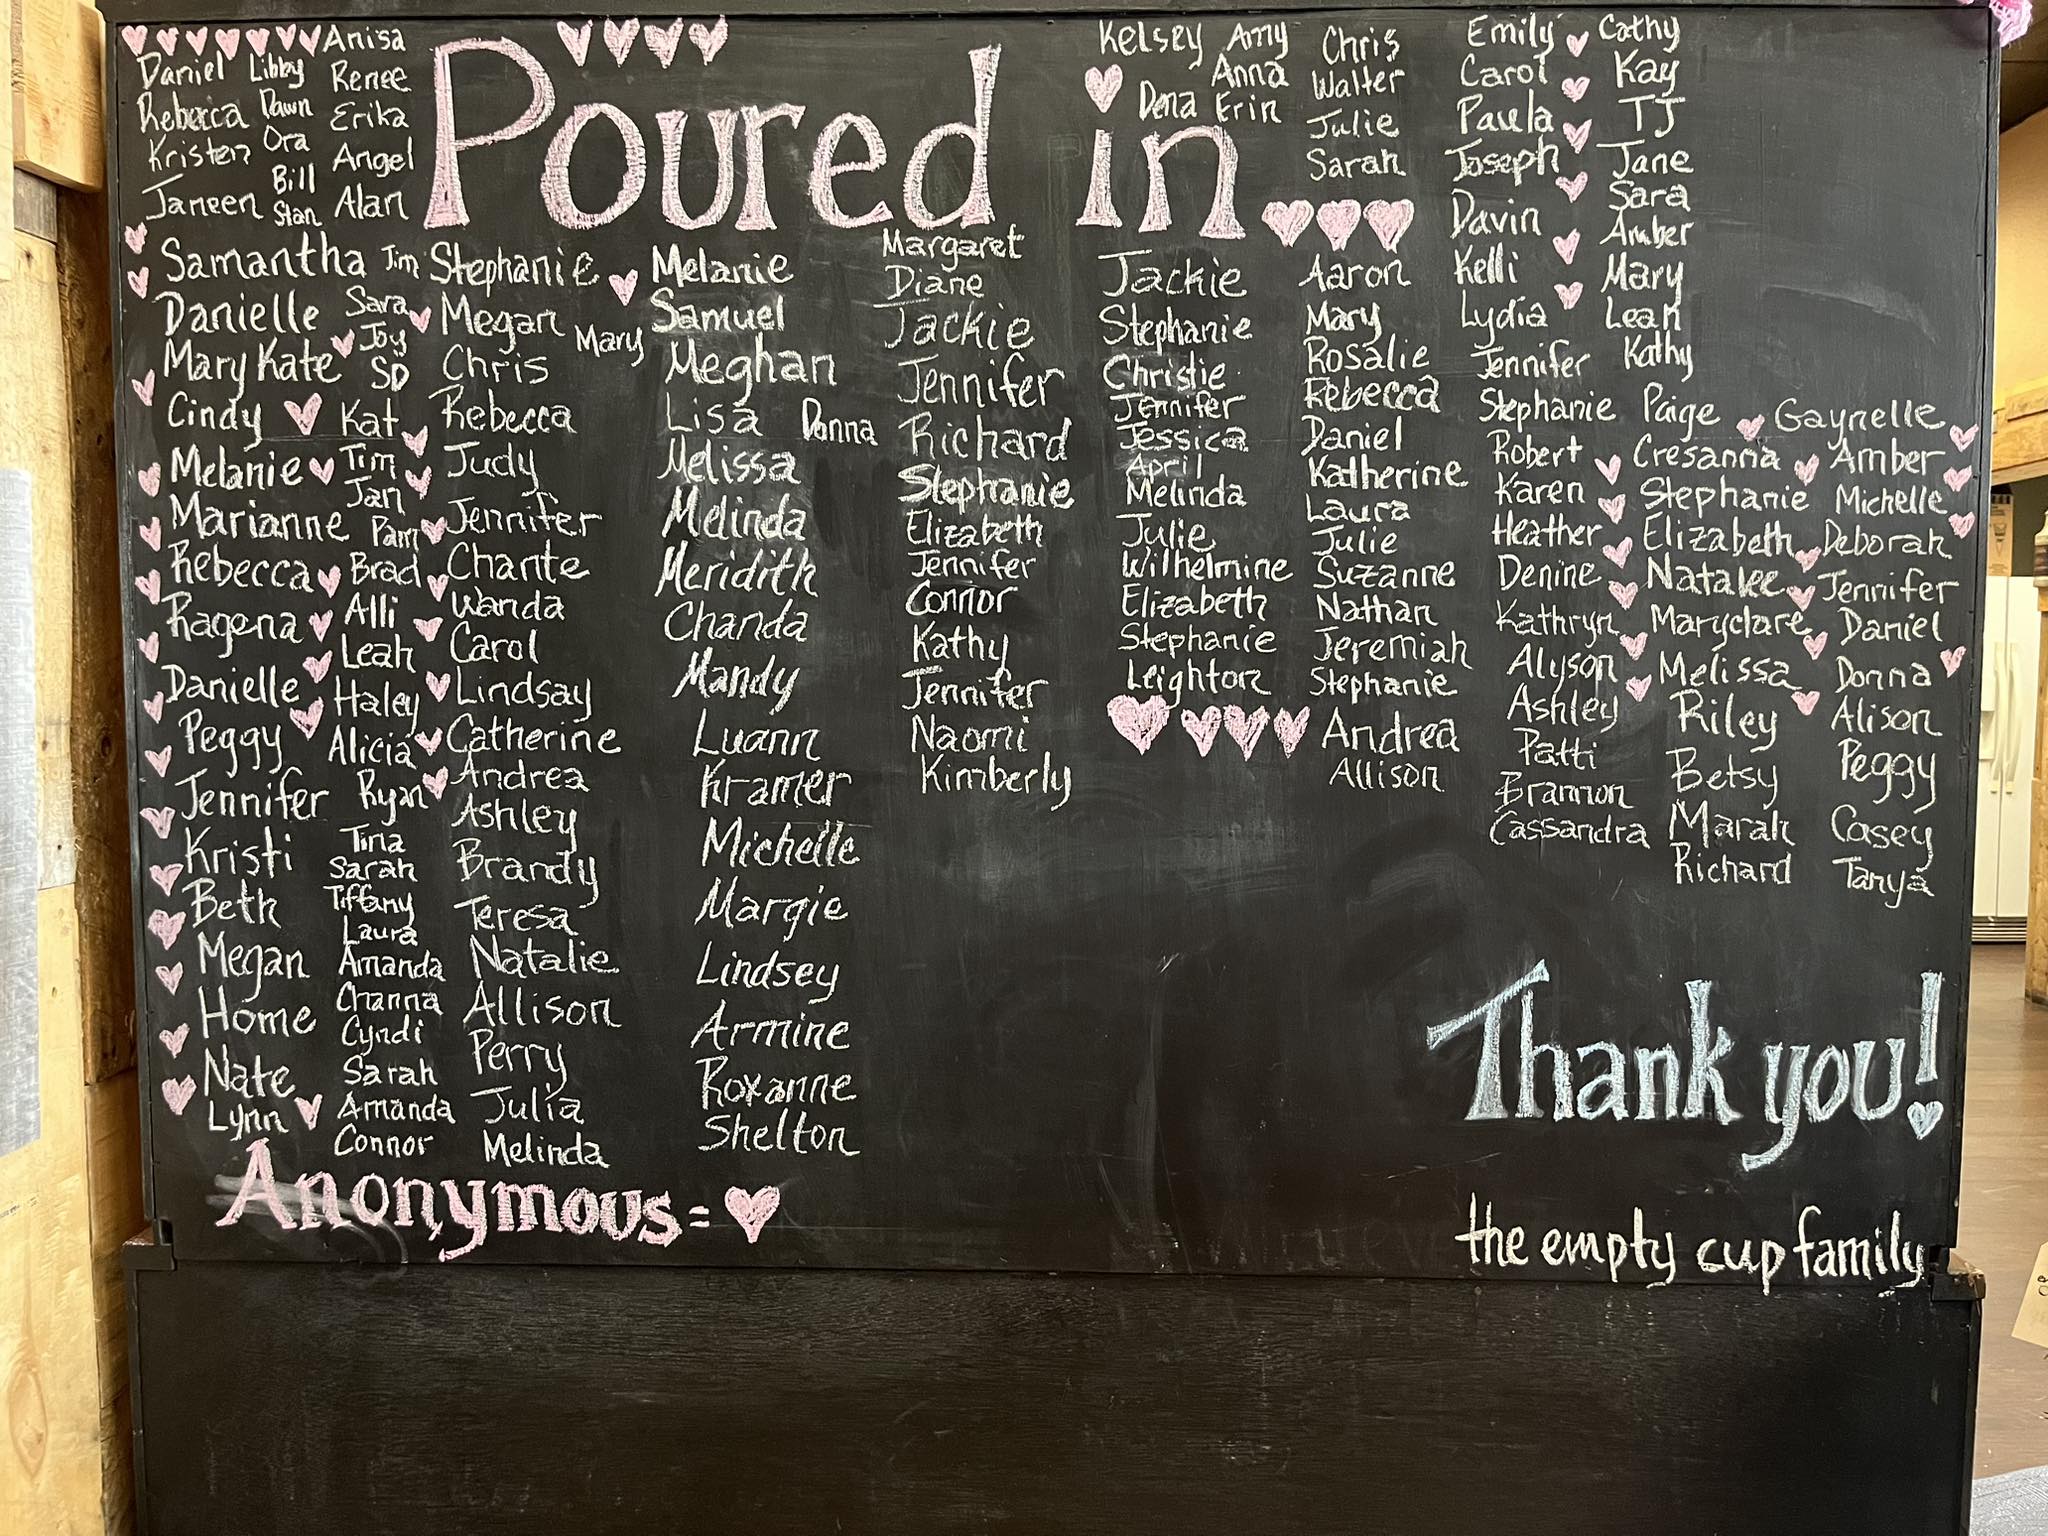 Anisa
Daniel Libby Renee
Rebecca Dawn Erika
Kristen Ora Angel
Janeen Bill Alan
Stan
Poured in
Kelsey Amy
Anna
Dena Erin
Chris
Walter
Julie
Sarah
Emily
Carol
Paula
Joseph
Davin
Kelli
Lydia
Jennifer
Cathy
Kay
TJ
Jane
Sara
Amber
Mary
Leah
Kathy
Samantha
Danielle
Mary Kate
Cindy
Melanie
Marianne
Rebecca
Ragena
Danielle
Peggy
Jennifer
Kristi
Beth
Megan
Home
Nate
Lynn
Jim
Sara
Joy
SD
Kat
Tim
Jan
Pam
Brad
Alli
Leah
Haley
Alicia
Ryan
Tina
Sarah
Tiffany
Laura
Amanda
Channa
Cyndi
Sarah
Amanda
Connor
Stephanie
Megan
Chris
Rebecca
Judy
Jennifer
Chante
Wanda
Carol
Lindsay
Catherine
Andrea
Ashley
Brandy
Teresa
Natalie
Allison
Perry
Julia
Melinda
Mary
Melanie
Samuel
Meghan
Lisa Donna
Melissa
Melinda
Meridith
Chanda
Mandy
Luann
Kramer
Michelle
Margie
Lindsey
Armine
Roxanne
Shelton
Margaret
Diane
Jackie
Jennifer
Richard
Stephanie
Elizabeth
Jennifer
Connor
Kathy
Jennifer
Naomi
Kimberly
Jackie
Stephanie
Christie
Jennifer
Jessica
April
Melinda
Julie
Wilhelmine
Elizabeth
Stephanie
Leighton
Aaron
Mary
Rosalie
Rebecca
Daniel
Katherine
Laura
Julie
Suzanne
Nathan
Jeremiah
Stephanie
Andrea
Allison
Stephanie
Robert
Karen
Heather
Denine
Kathryn
Alyson
Ashley
Patti
Brannon
Cassandra
Paige
Cresanna
Stephanie
Elizabeth
Natalee
Maryclare
Melissa
Riley
Betsy
Marah
Richard
Gaynelle
Amber
Michelle
Deborah
Jennifer
Daniel
Donna
Alison
Peggy
Casey
Tanya
Anonymous =
Thank you!
the empty cup family